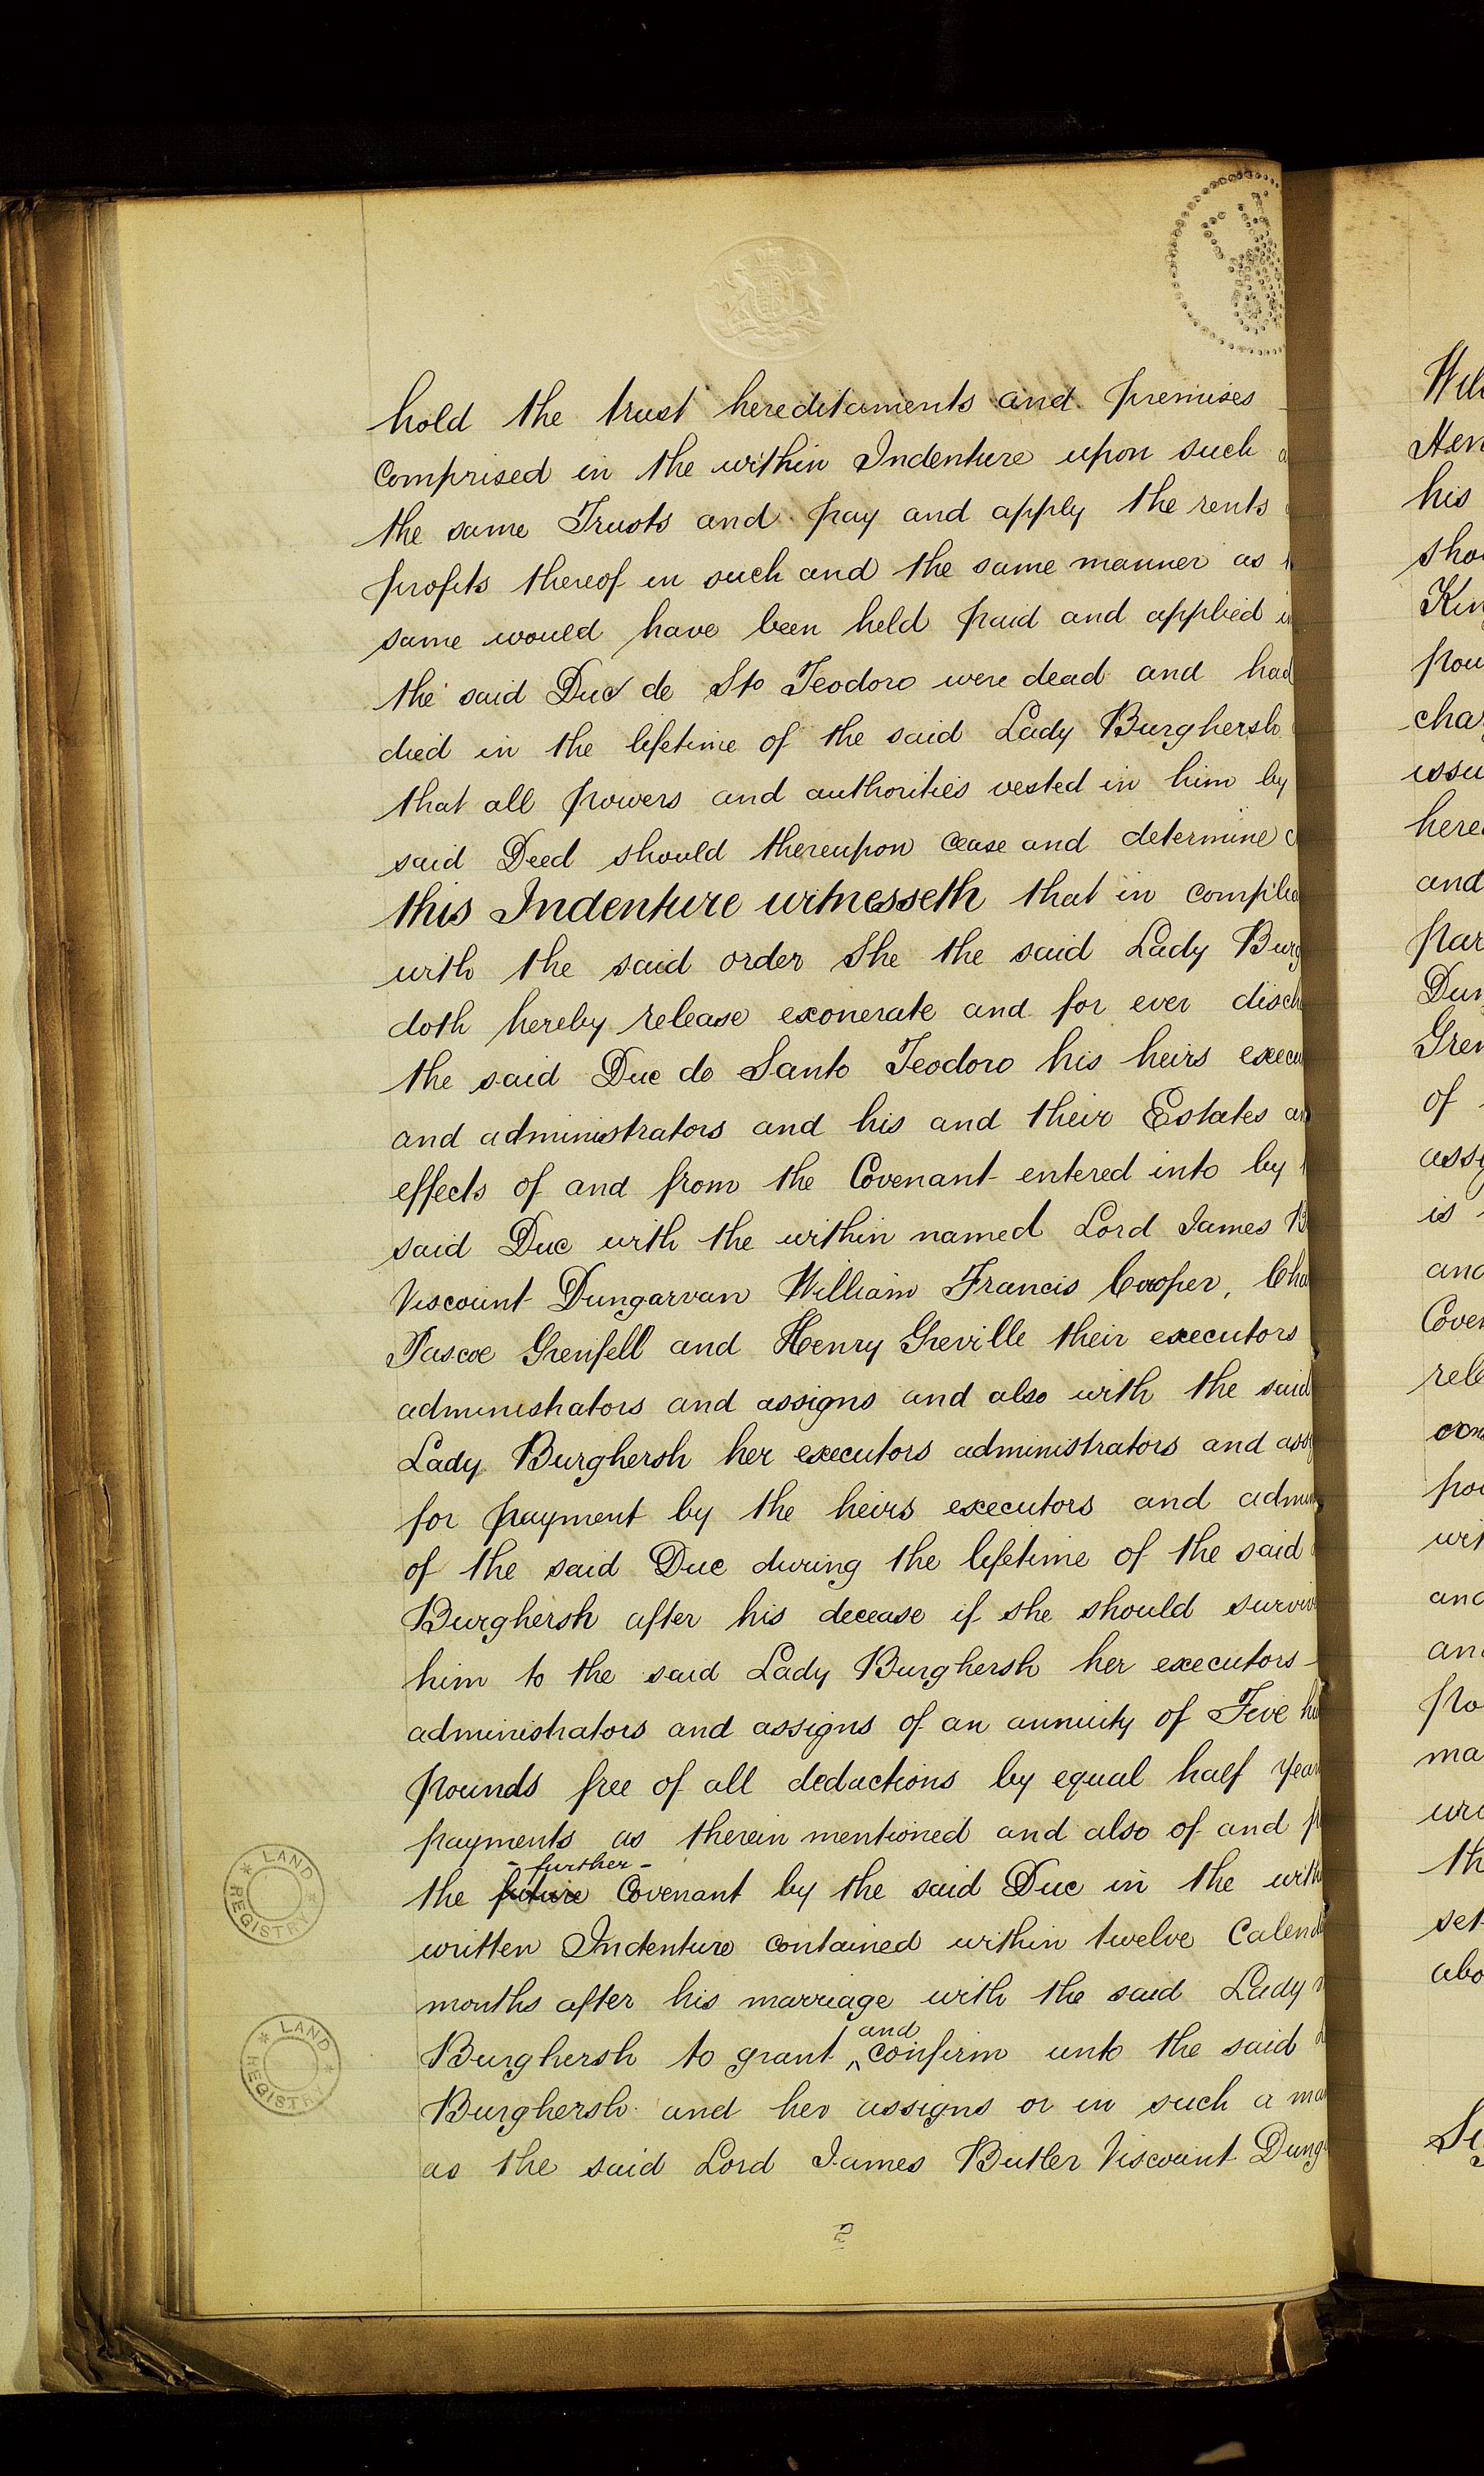 hold the trust hereditaments and premises
comprised in the within Indenture upon such
the same Trusts and pay and apply the rents
profits thereof in such and the same manner as
same would have been held paid and applied
the said Duc de Sto Teodoro were dead and had
died in the lifetime of the said Lady Burghersh
that all powers and authorities vested in him by
said Deed should thereupon cease and determine
this Indenture witnesseth that in complia
with the said order She the said Lady Burg
doth hereby release exonerate and for ever disch
the said Duc de Santo Teodoro his heirs execu
and administrators and his and their Estates an
effects of and from the Covenant entered into by
said Duc with the within named Lord James B
Viscount Dungarvan William Francis Cowper, Cha
Pascoe Grenfell and Henry Greville their executors
administrators and assigns and also with the said
Lady Burghersh her executors administrators and ass
for payment by the heirs executors and admin
of the said Duc during the lifetime of the said
Burghersh after his decease if she should surviv
him to the said Lady Burghersh her executors
administrators and assigns of an annuity of Five hu
pounds free of all deductions by equal half year
payments as therein mentioned and also of and f
- further -
the future Covenant by the said Duc in the with
written Indenture contained within twelve Calend
months after his marriage with the said Lady
and
Burghersh to grant ^ confirm unto the said
Burghersh and her assigns or in such a man
as the said Lord James Butler Viscount Dung
2
LAND REGISTRY
LAND REGISTRY
Will
Hen
his
sho
Kin
pow
char
issu
here
and
par
Dun
Gren
of
assi
is
and
Cove
rele
con
pow
wit
and
and
po
ma
th
set
abo
Si